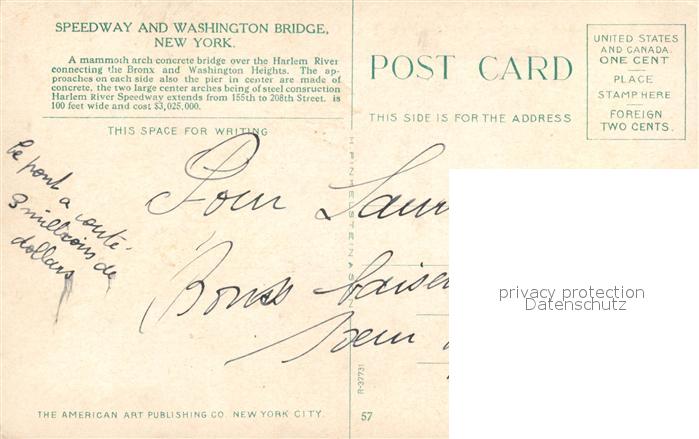 SPEEDWAY AND WASHINGTON BRIDGE,
NEW YORK.
A mammoth arch concrete bridge over the Harlem River
connecting the Bronx and Washington Heights. The ap-
proaches on each side also the pier in center are made of
concrete, the two large center arches being of steel consruction
Harlem River Speedway extends from 155th to 208th Street. is
100 feet wide and cost $3,025,000.
THIS SPACE FOR WRITING
POST CARD
THIS SIDE IS FOR THE ADDRESS
UNITED STATES
AND CANADA
ONE CENT
PLACE
STAMP HERE
FOREIGN
TWO CENTS.
Le pont a coûté
3 millions de
dollars
Pour Laur
Bons baiser
H FINKELSTEIN & SON
privacy protection
Datenschutz
R-37731
THE AMERICAN ART PUBLISHING CO. NEW YORK CITY.
57